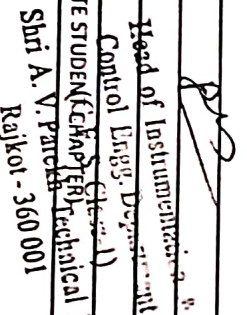 Head of Instrumentation &
Control Engg. Department
(Class-I)
TE STUDENT CHAPTER)
Shri A. V. Parekh Technical
Rajkot - 360 001